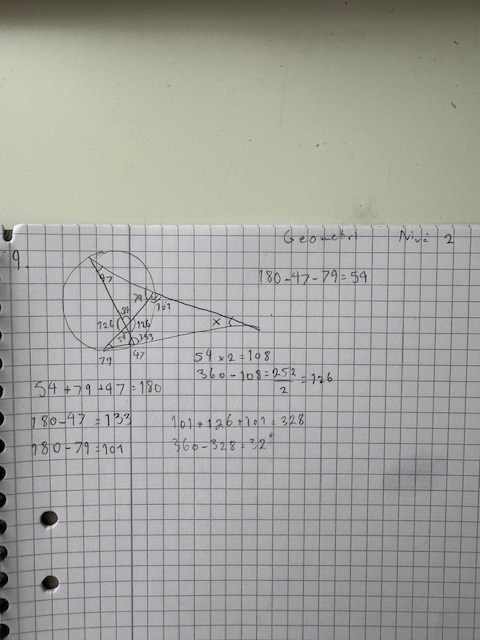 Geometri Nivå 2
9.
180-47-79=54
47
79
101
54
126 126
54 133
x
79 47
54 x 2 = 108
360 - 108 = 252/2 = 126
54 + 79 + 47 = 180
180 - 47 = 133
101 + 126 + 101 = 328
180 - 79 = 101
360 - 328 = 32°